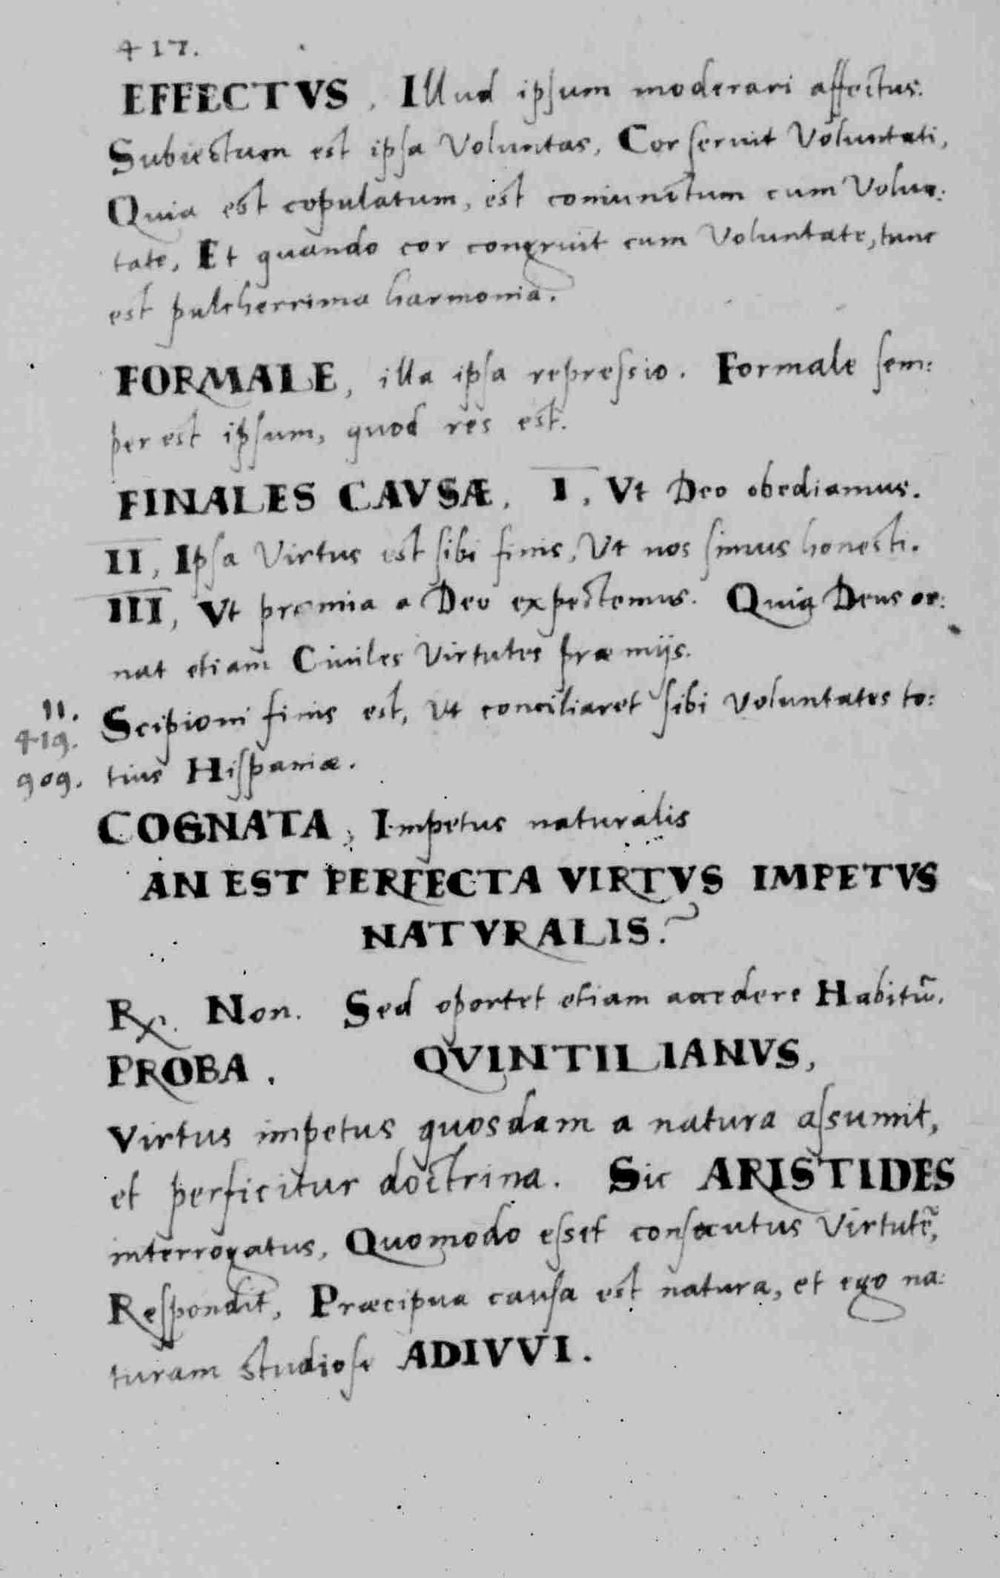 417.
EFFECTVS, Illud ipsum moderari affectus.
Subiectum est ipsa Voluntas, Cor seruit Voluntati,
Quia est copulatum, est coniunctum cum Volun:
tate, Et quando cor congruit cum Voluntate, tunc
est pulcherrima harmonia.
FORMALE, illa ipsa repressio. Formale sem:
per est ipsum, quod res est.
FINALES CAVSÆ, I, Vt Deo obediamus.
II, Ipsa Virtus est sibi finis, Vt nos simus honesti.
III, Vt præmia a Deo expectemus. Quia Deus or:
nat etiam Ciuiles Virtutes præmijs.
II. Scipioni finis est, Vt conciliaret sibi voluntates to:
419.
909. tius Hispaniæ.
COGNATA, Impetus naturalis
AN EST PERFECTA VIRTVS IMPETVS
NATVRALIS?
R. Non. Sed oportet etiam accedere Habitū.
PROBA. QVINTILIANVS,
Virtus impetus quosdam a natura assumit,
et perficitur doctrina. Sic ARISTIDES
interrogatus, Quomodo esset consecutus Virtutē,
Respondit, Præcipua causa est natura, et ego na:
turam studiose ADIVVI.